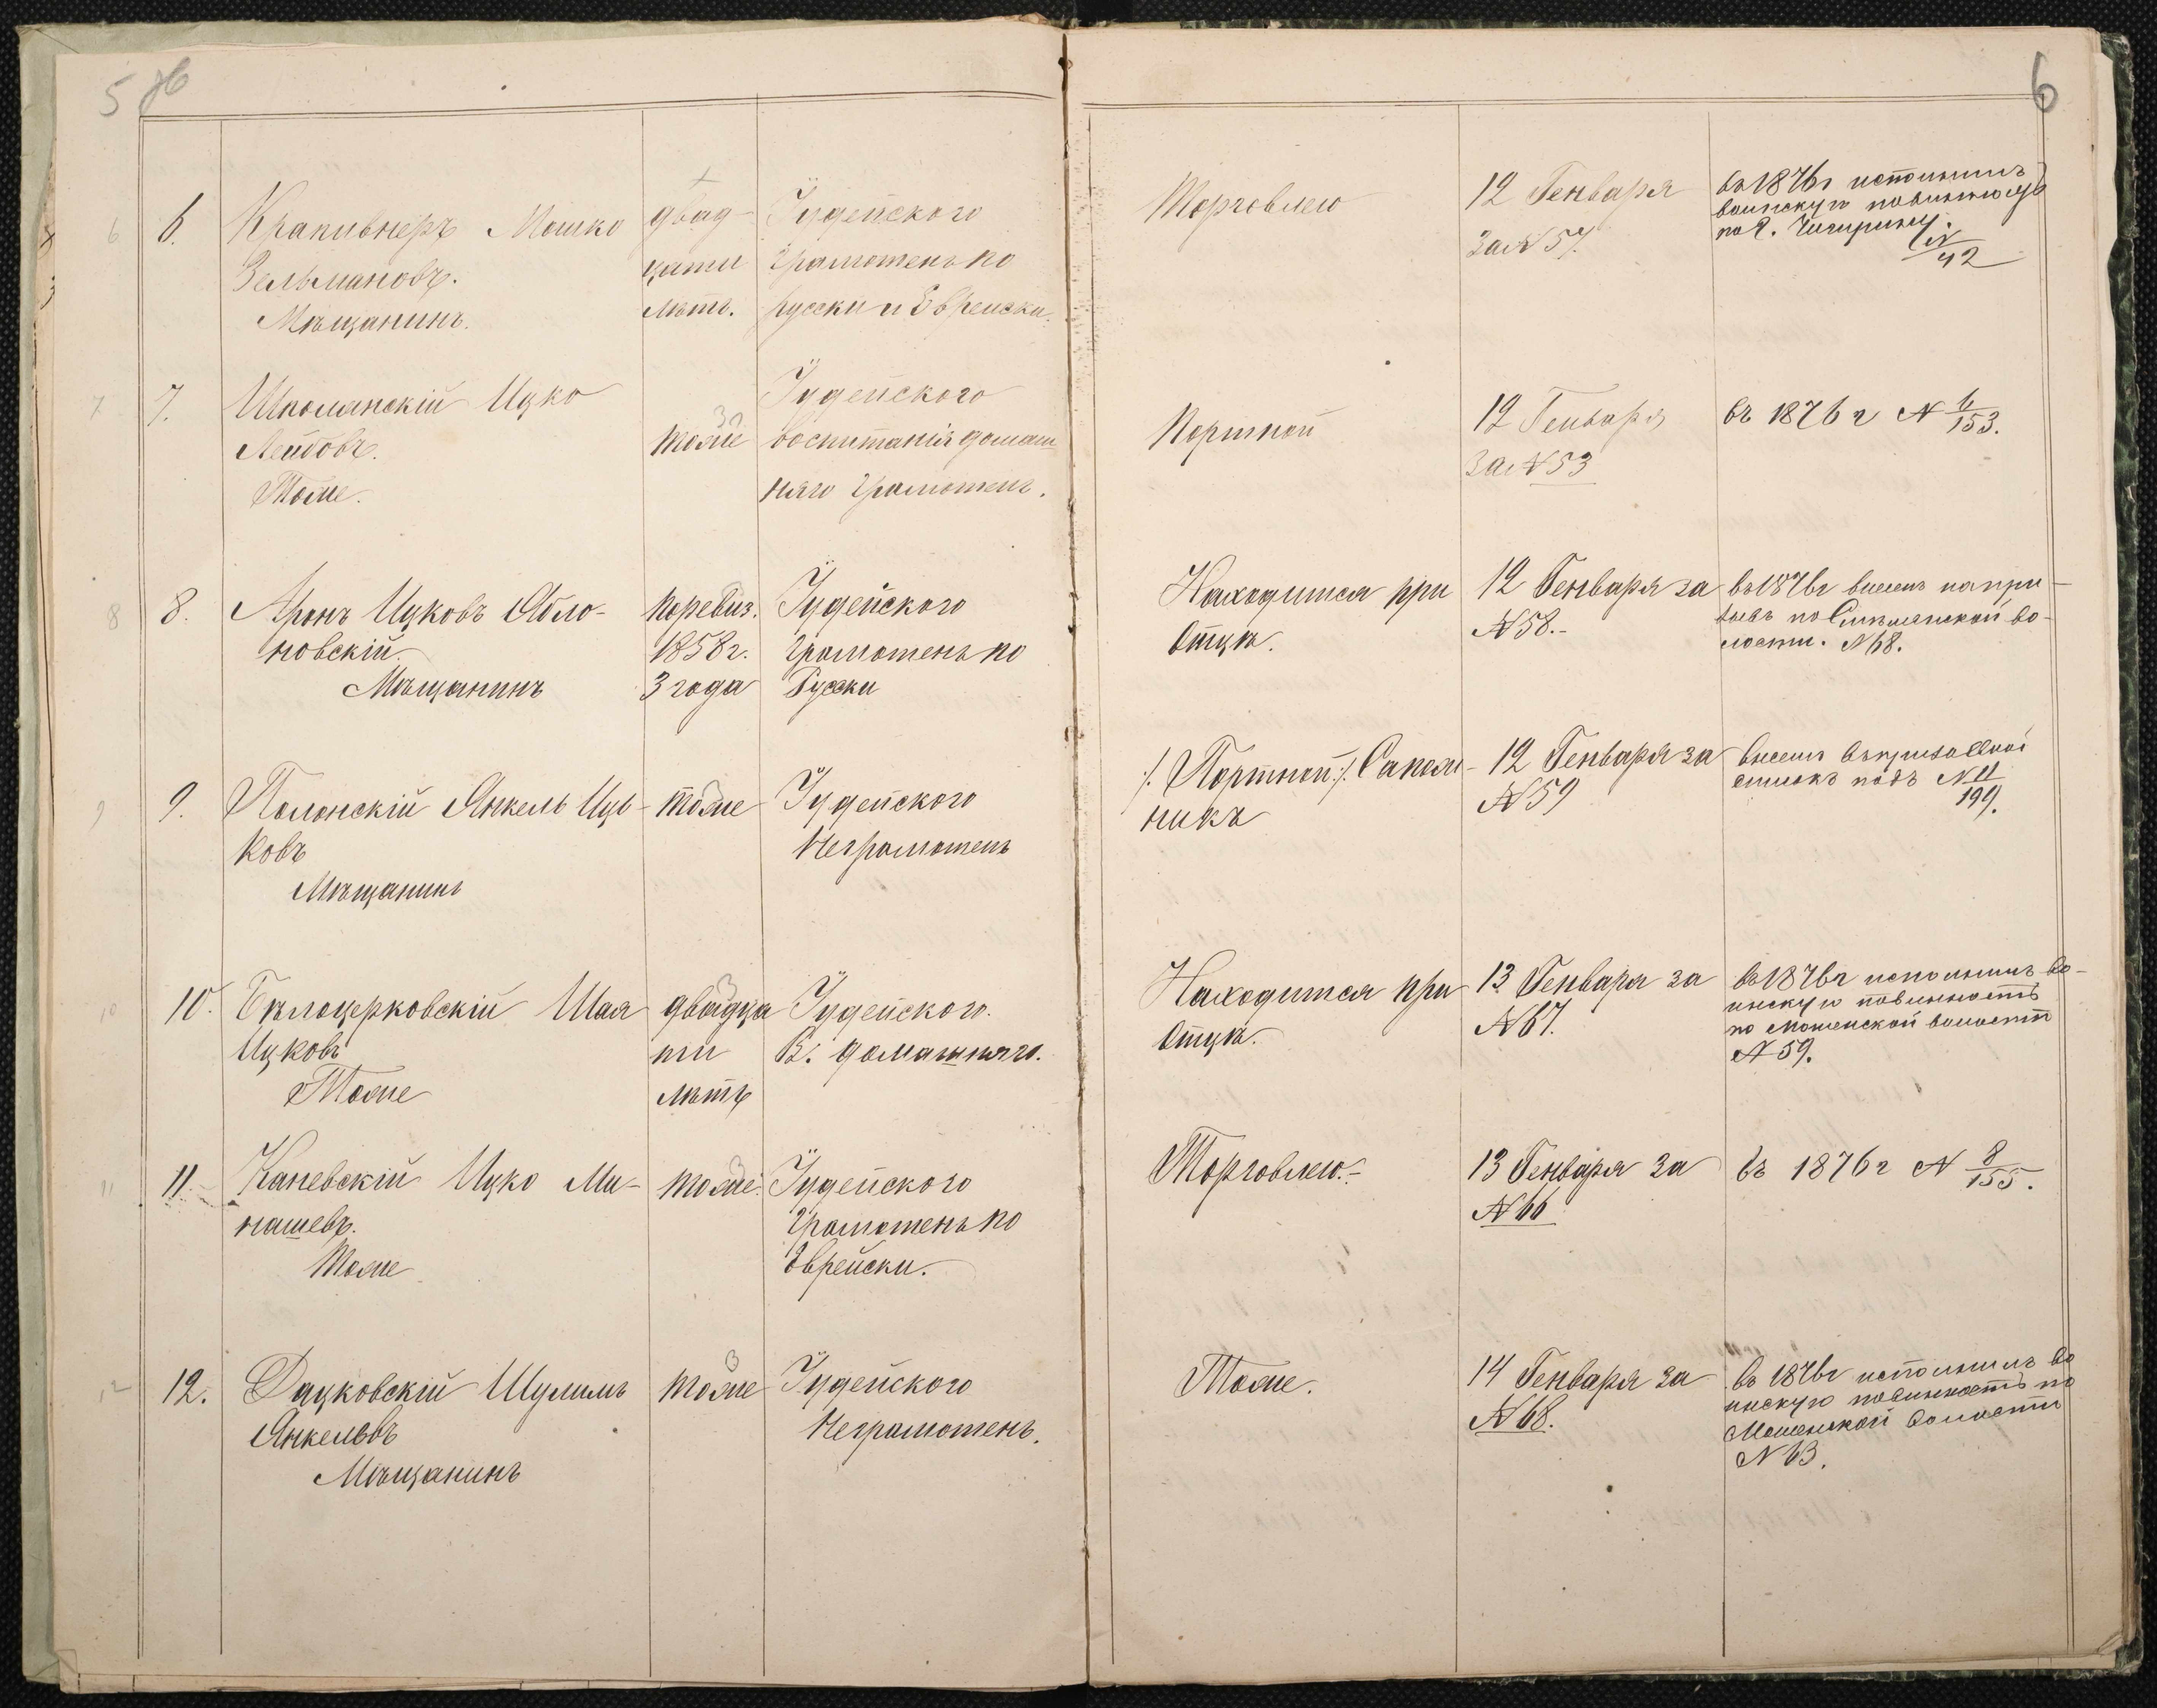 5 об
6
6 6. Крапивнеръ Мошко
Зельмановъ.
Мѣщанинъ.
двад
цати
лѣтъ.
Іудейскаго
грамотенъ по
русски и Еврейски.
Торговлею
12 Генваря
За №57.
въ 1876г исполнилъ
воинскую повинность
по г. Чигирину.
№/42
7 7. Шполянскій Ицко
Лейбовъ.
Тоже.
тоже
Іудейскаго
воспитанія домаш
няго грамотенъ.
Портной
12 Генваря
За №53
въ 1876 г № 6/153.
8 8. Аронъ Ицковъ Ябло-
новскій.
Мѣщанинъ
По ревиз.
1858 г.
3 года
Іудейскаго
грамотенъ по
Русски
Находится при
Отцѣ.
12 Генваря за
№58.-
въ 1876г внесенъ на при-
зывъ по волости. №68.
9 9. Полонскій Янкель Иць-
ковъ
Мѣщанинъ
тоже
Іудейскаго
Неграмотенъ
/. Портной ./. Сапож-
никъ
12 Генваря за
№59
внесенъ въ призывной
списокъ подъ № 11/199.
10 10. Бѣлоцерковскій Шая
Ицковъ
Тоже
двадца
ти
лѣтъ
Іудейскаго.
В. домашняго.
Находится при
Отцѣ.
13 Генваря за
№67.
въ 1876г исполнилъ во-
инскую повинность
по Мошенской волости
№59.
11 11. Каневскій Ицко Ми-
нашевъ.
Тоже
тоже.
Іудейскаго
грамотенъ по
Еврейски.
Торговлею.-
13 Генваря за
№66
въ 1876 г № 8/155.
12 12. Дацковскій Шулимъ
Янкельвъ
Мѣщанинъ
тоже
Іудейскаго
Неграмотенъ.
Тоже.
14 Генваря за
№68.
въ 1876г исполнилъ во
инскую повинность по
Мошенской волости
№63.